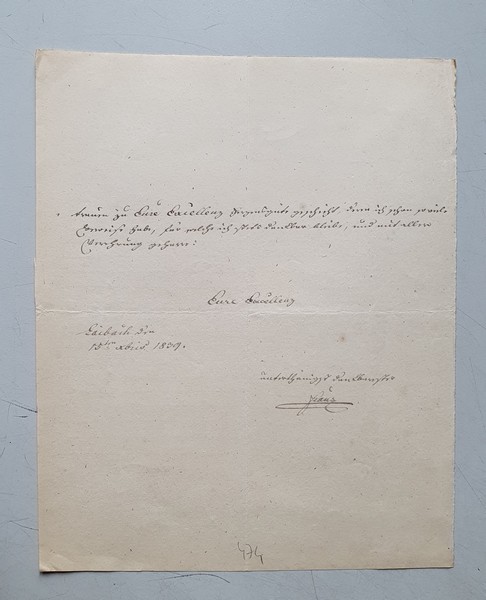 trauen zu Eure Excellenz Herzensgüte geschieht, denn ich schon so viele
Beweise habe, für welche ich stets dankbar bleibe, und mit aller
Verehrung geharre:
Eure Excellenz
Laibach den
15ten xbris 1839.
unterthänigst dankbarster
Franz
474